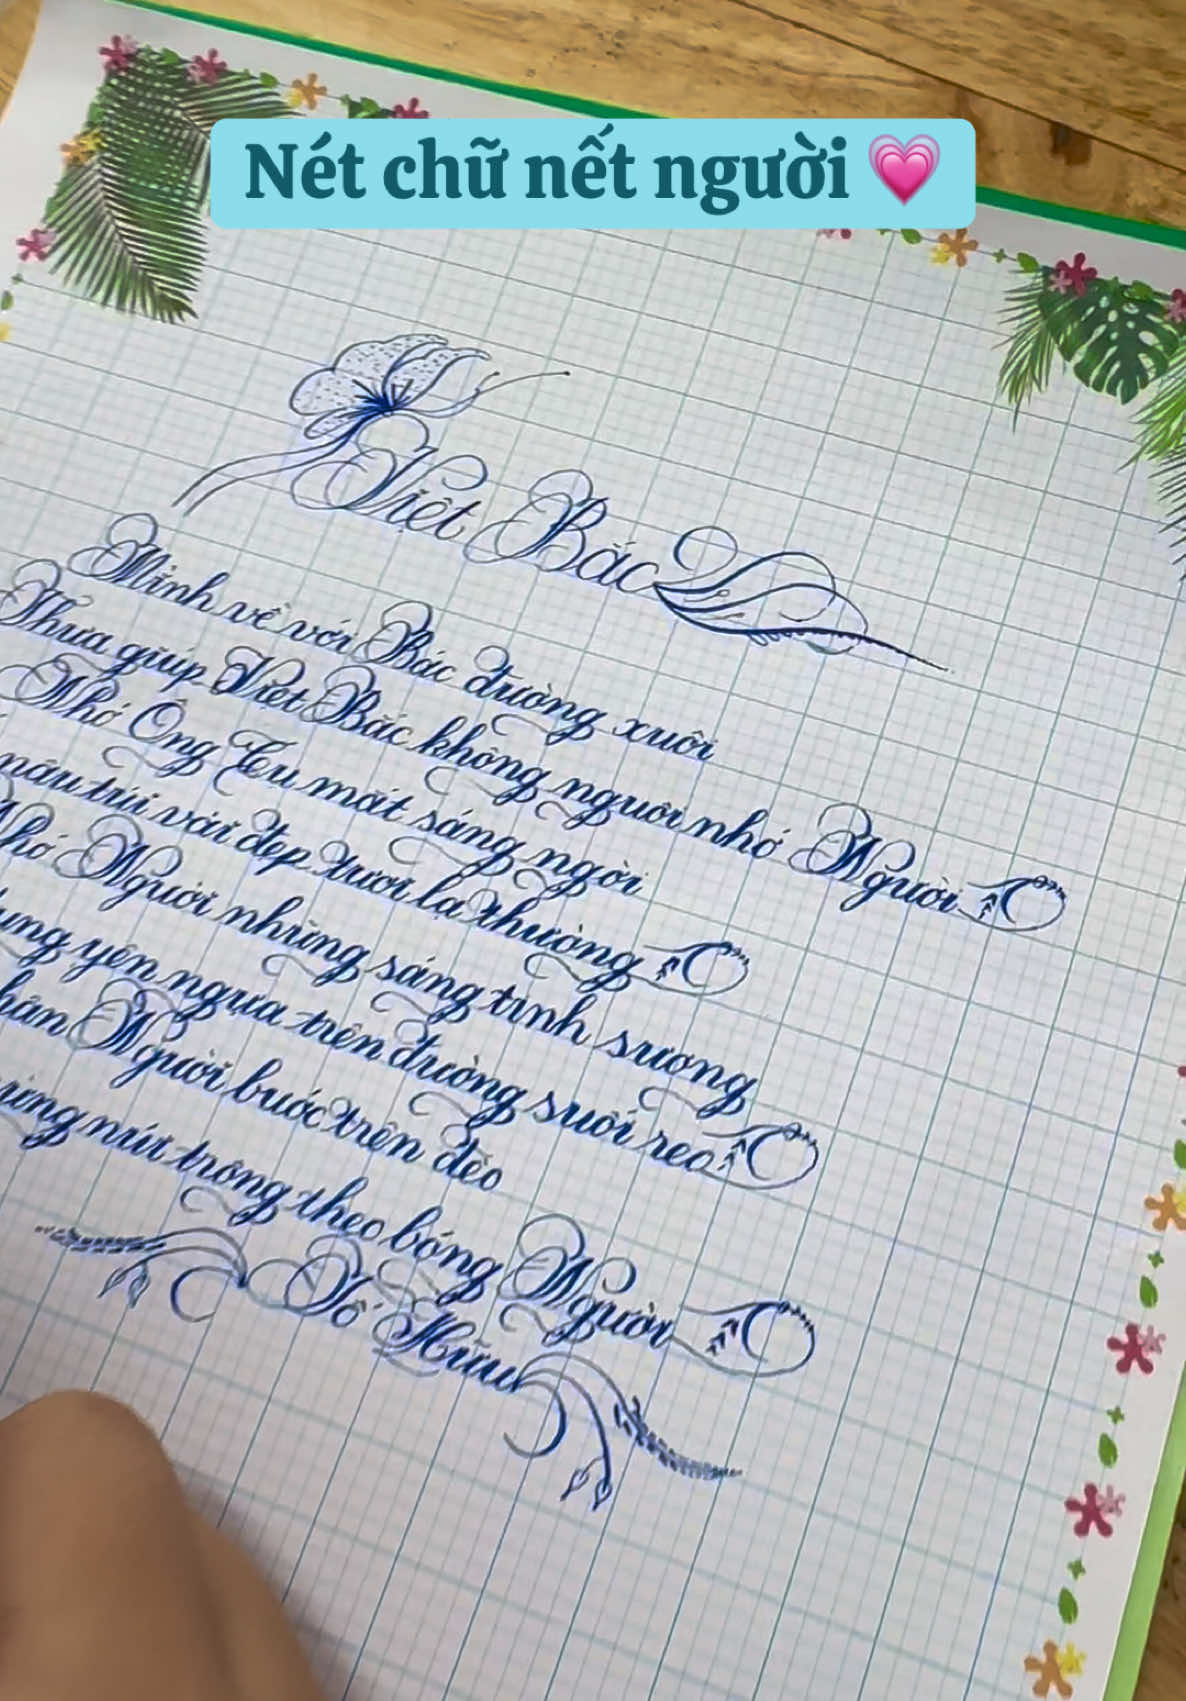 Nét chữ nết người
Việt Bắc
Mình về với Bác đường xuôi
Thưa giúp Việt Bắc không nguôi nhớ Người
Nhớ Ông Cụ mắt sáng ngời
nâu túi vải đẹp tươi lạ thường
Nhớ Người những sáng tinh sương
ung yên ngựa trên đường suối reo
hân Người bước trên đèo
rừng núi trông theo bóng Người
Tố Hữu